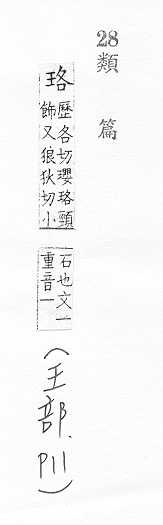 28
類篇
珞
歷各切瓔珞頸
飾又狼狄切小
石也文一
重音一
(王部.P11)